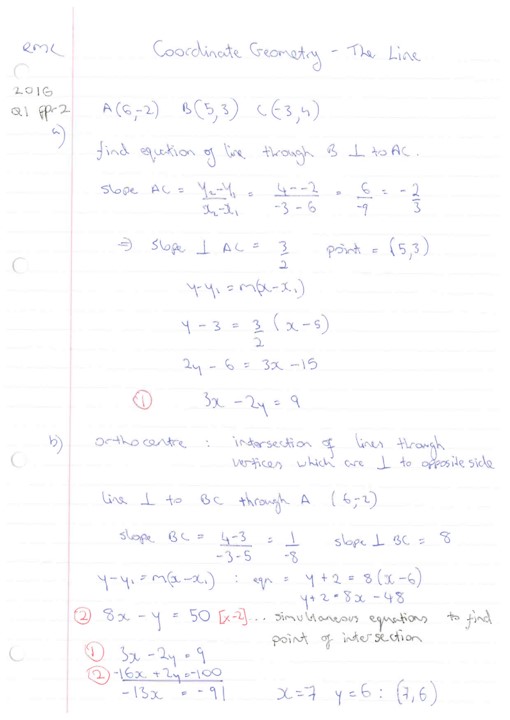 RMC Coordinate Geometry - The Line
2016
Q1 ppr2
a) A(6,-2) B(5,3) C(-3,4)
find equation of line through B ⊥ to AC.
slope AC = y₂-y₁/x₂-x₁ = 4--2/-3-6 = 6/-9 = -2/3
⇒ slope ⊥ AC = 3/2 point = (5,3)
y-y₁ = m(x-x₁)
y-3 = 3/2 (x-5)
2y-6 = 3x-15
① 3x-2y = 9
b) orthocentre : intersection of lines through
vertices which are ⊥ to opposite side
line ⊥ to BC through A (6,-2)
slope BC = 4-3/-3-5 = 1/-8 slope ⊥ BC = 8
y-y₁ = m(x-x₁) : eqn = y+2 = 8(x-6)
y+2 = 8x-48
② 8x-y = 50 [x-2] ... simultaneous equations to find
point of intersection
① 3x-2y = 9
② -16x+2y = -100
-13x = -91 x=7 y=6 : (7,6)